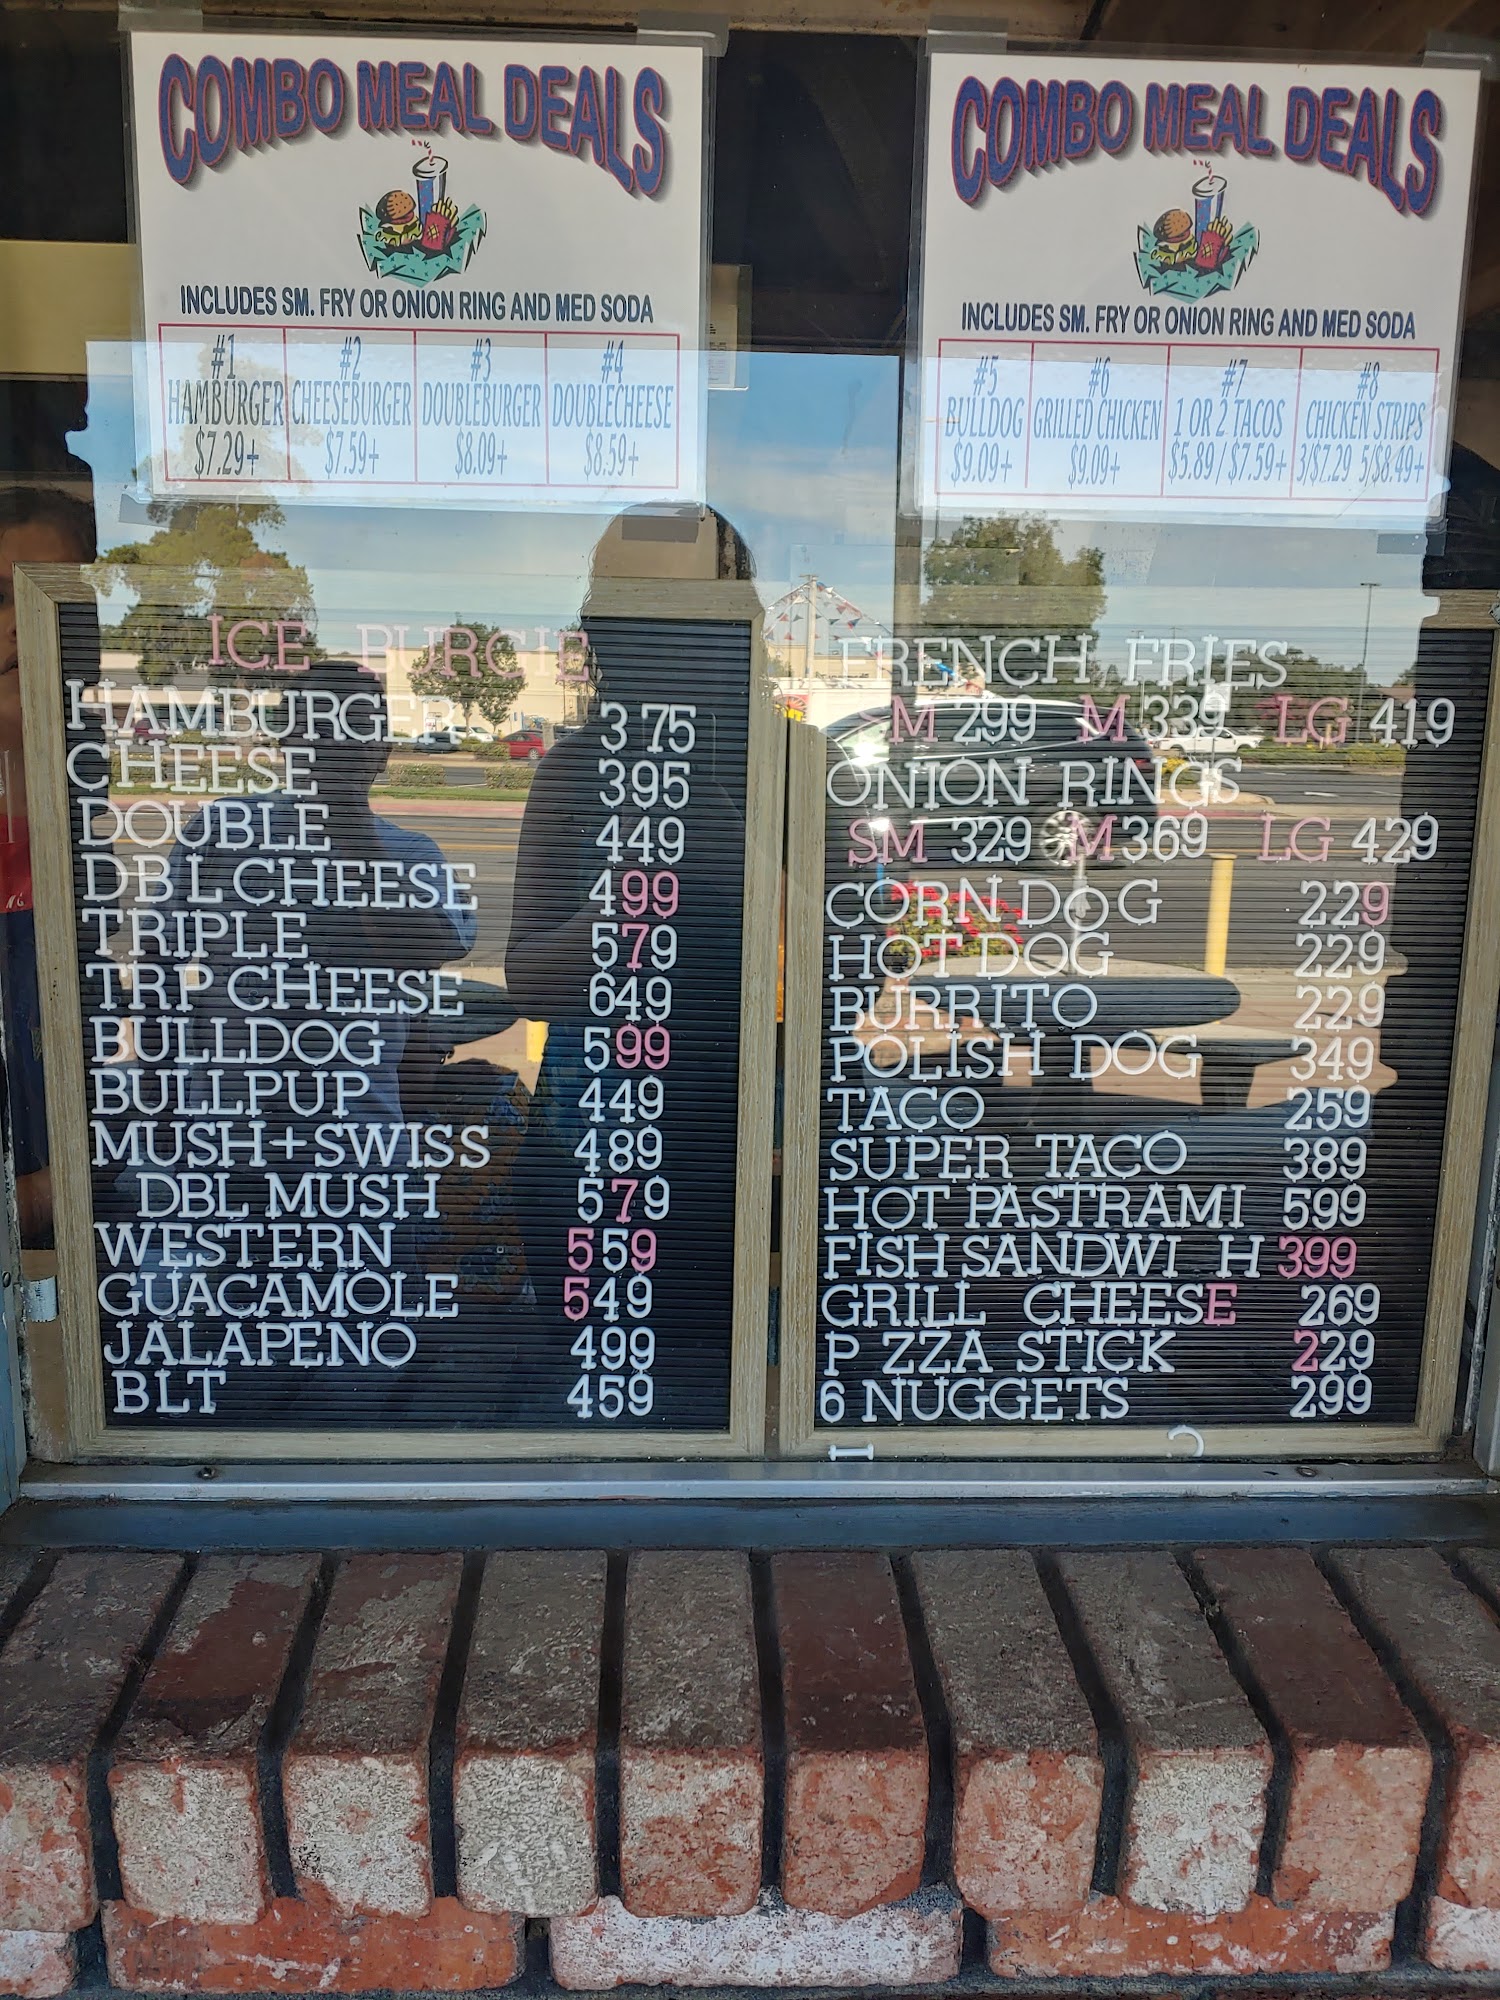 COMBO MEAL DEALS
INCLUDES SM. FRY OR ONION RING AND MED SODA
#1 #2 #3 #4
HAMBURGER CHEESEBURGER DOUBLEBURGER DOUBLECHEESE
$7.29+ $7.59+ $8.09+ $8.59+
COMBO MEAL DEALS
INCLUDES SM. FRY OR ONION RING AND MED SODA
#5 #6 #7 #8
BULLDOG GRILLED CHICKEN 1 OR 2 TACOS CHICKEN STRIPS
$9.09+ $9.09+ $5.89 / $7.59+ 3/$7.29 5/$8.49+
ICE BURGIE
HAMBURGER 3 75
CHEESE 395
DOUBLE 449
DBL CHEESE 499
TRIPLE 579
TRP CHEESE 649
BULLDOG 599
BULLPUP 449
MUSH+SWISS 489
DBL MUSH 579
WESTERN 559
GUACAMOLE 549
JALAPENO 499
BLT 459
FRENCH FRIES
SM 299 M 339 LG 419
ONION RINGS
SM 329 M 369 LG 429
CORN DOG 229
HOT DOG 229
BURRITO 229
POLISH DOG 349
TACO 259
SUPER TACO 389
HOT PASTRAMI 599
FISH SANDWI H 399
GRILL CHEESE 269
P ZZA STICK 229
6 NUGGETS 299
I C